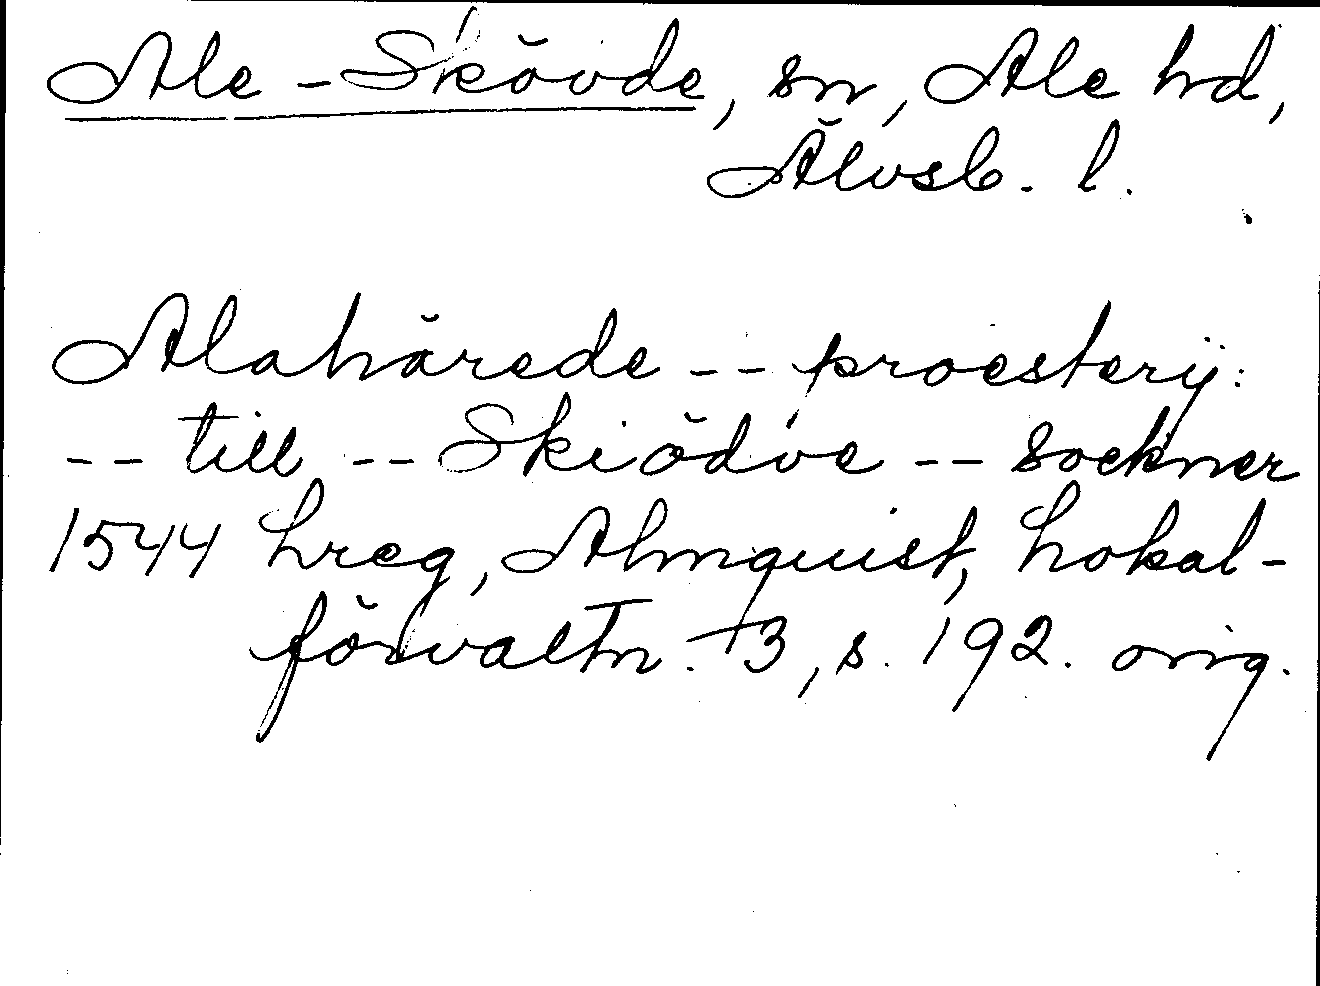 Ale-Skövde, sn, Ale hd,
Älvsb. l.
Alahärede -- proestery:
-- till -- Skiödve -- sockner
1544 Lreg, Almquist, Lokal-
förvaltn. 3, s. 192. orig.